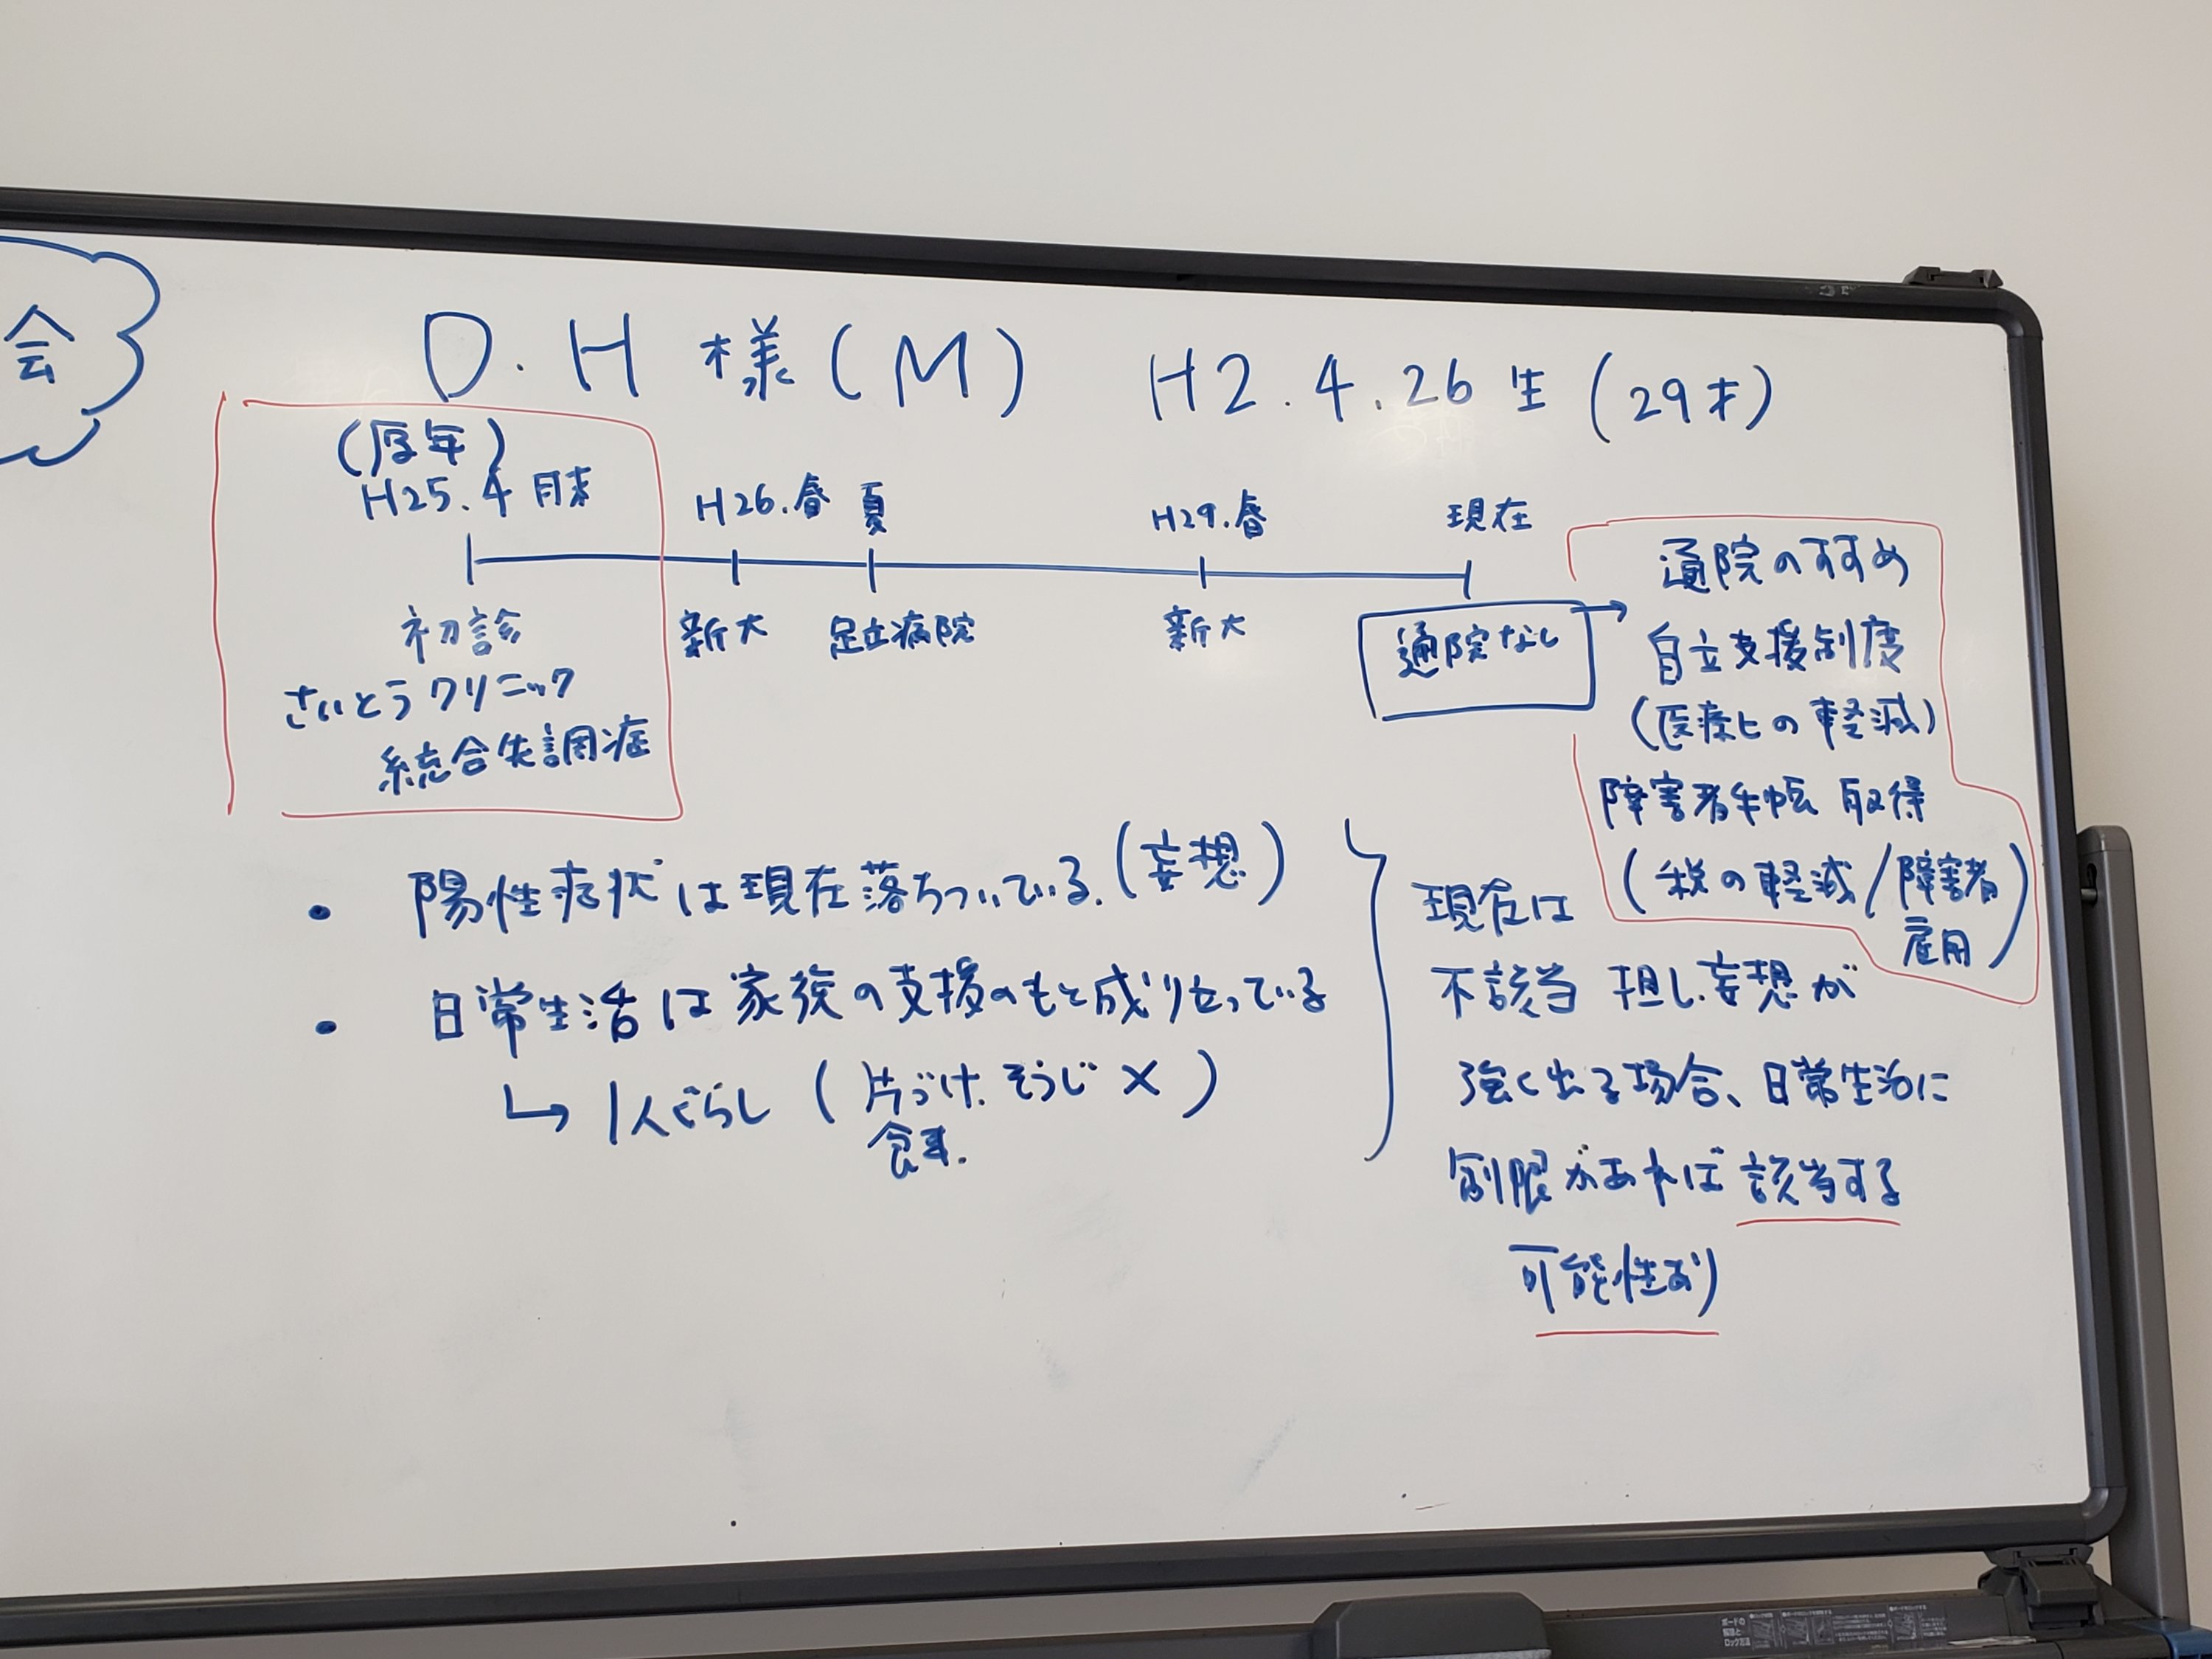 会
D.H 様(M) H2.4.26 生(29才)
(厚年)
H25.4 月末
H26.春 夏
H29.春
現在
初診
さいとうクリニック
統合失調症
新大
足立病院
新大
通院なし
通院のすすめ
自立支援制度
(医療ヒの軽減)
障害者手帳 取得
(税の軽減/障害者
雇用)
• 陽性症状は現在落ちついている.(妄想)
• 日常生活は家族の支援のもと成り立っている
↳ 1人ぐらし (片づけ.そうじ ×)
食事.
現在は
不該当 担し.妄想が
強く出る場合、日常生活に
制限があれば 該当する
可能性あり